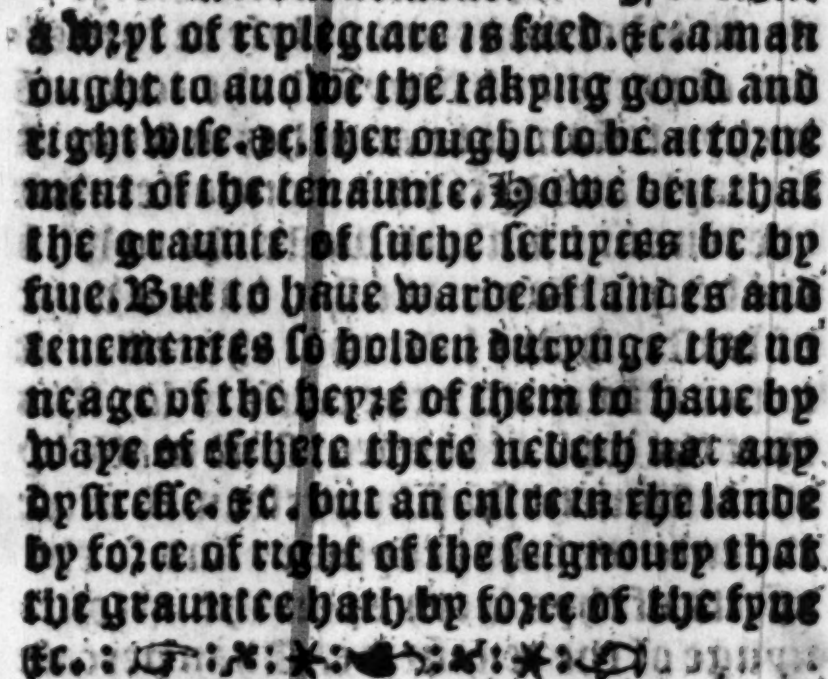 a wryt of replegiare is sued. &c. a man
ought to auowe the takyng good and
rightwise. &c. ther ought to be attorne
ment of the tenaunte. Howe beit that
the graunte of suche seruyces be by
fine. But to haue warde of landes and
tenementes so holden durynge the no
neage of the heyre of them to haue by
waye of eschete there nedeth nat any
dystresse. &c. but an entre in the lande
by force of right of the seignoury that
the grauntee hath by force of the fyne
&c.